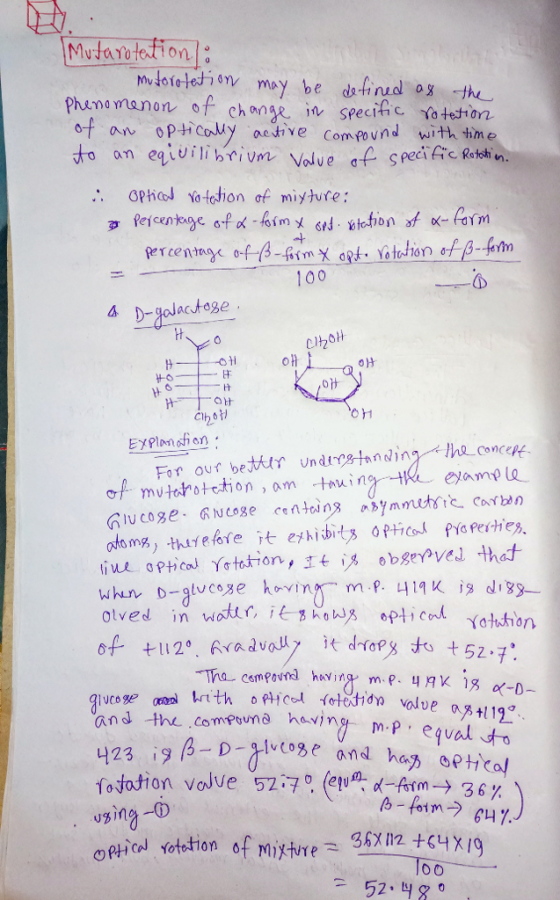 Mutarotation :
Mutarotation may be defined as the
Phenomenon of change in specific rotation
of an optically active compound with time
to an eqiuilibrium value of specific Rotation.
∴ Optical rotation of mixture:
Percentage of α-form x opt. rotation of α-form
+
percentage of β-form x opt. rotation of β-form
= 100 — ①
D-galactose.
H O
H OH
HO H
HO H
H OH
CH2OH
CH2OH
OH O OH
OH
OH
Explanation :
For our better understanding the concept
of mutarotation, am taking the example
Glucose. Glucose contains asymmetric carbon
atoms, therefore it exhibits optical properties.
like optical rotation, It is observed that
when D-glucose having m.p. 419K is diss-
olved in water, it shows optical rotation
of +112°. Gradually it drops to +52.7°.
The compound having m.p. 419K is α-D-
glucose with optical rotation value as +112°.
and the compound having m.p. equal to
423 is β-D-glucose and has optical
rotation value 52.7° (equm. α-form → 36%.
β-form → 64%.)
using -①
optical rotation of mixture = 36X112 +64X19
100
= 52.48°